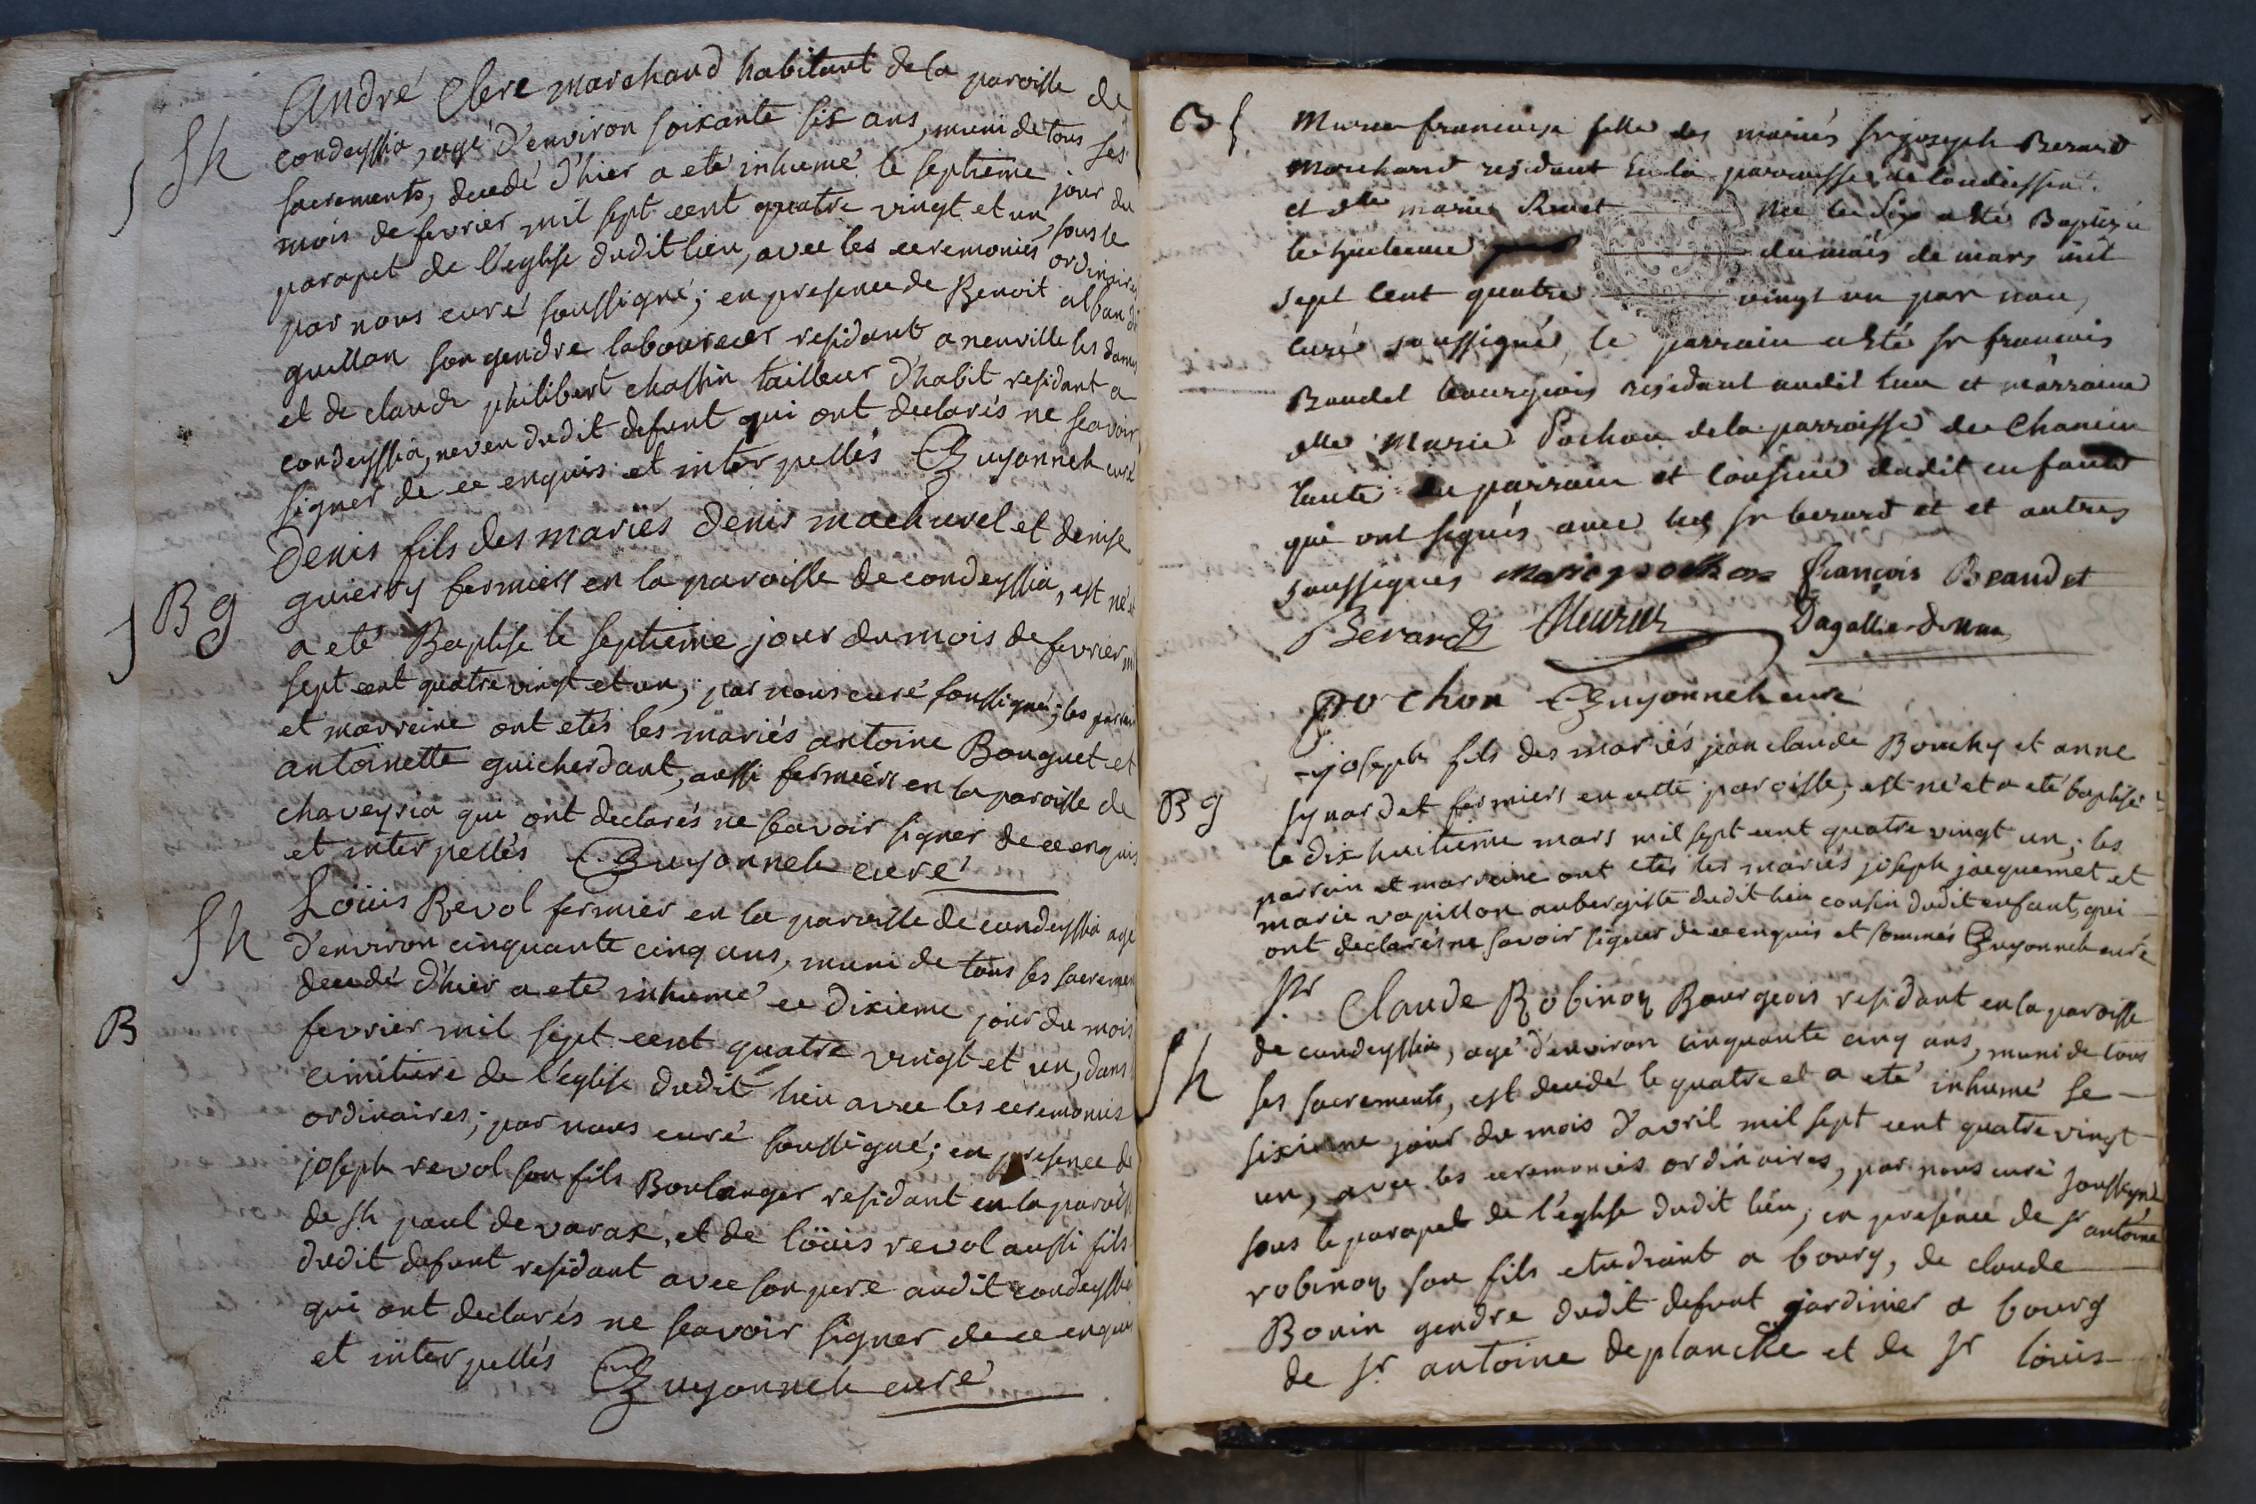 André Clere marchand habitant de la paroisse de
Sh
condeyssia, agé d'environ soixante six ans, muni de tous ses
sacrements, decedé d'hier a eté inhumé le septieme jour du
mois de fevrier mil sept cent quatre vingt et un, sous le
parapet de l'eglise dudit lieu, avec les ceremonies ordinaires
par nous curé soussigné; en presence de Benoit alban
guillon son gendre laboureur residant a neuville les dames
et de claude philibert chassin tailleur d'habit residant a
condeyssia, neveu dudit defunt qui ont declarés ne scavoir
signer de ce enquis et interpellés Guyonneh curé
Denis fils des mariés denis machurel et denise
Bg
guierry fermiers en la paroisse de condeyssia, est né et
a eté Baptise le septieme jour du mois de fevrier mil
sept cent quatre vingt et un, par nous curé soussigné; les parrain
et marreine ont etés les mariés antoine Bouquet et
antoinette guicherdant, aussi fermiers en la paroisse de
chaveyria qui ont declarés ne scavoir signer de ce enquis
et interpellés Guyonneh curé
Loüis Revol fermier en la paroisse de condeyssia agé
Sh
d'environ cinquante cinq ans, muni de tous ses sacremens
decedé d'hier a eté inhumé ce dixieme jour du mois
B
fevrier mil sept cent quatre vingt et un, dans
cimitiere de l'eglise dudit lieu avec les ceremonies
ordinaires; par nous curé soussigné; en presence de
joseph revol son fils Boulanger residant en la paroisse
de St paul de varax, et de loüis revol aussi fils
dudit defunt residant avec son pere audit condeyssia
qui ont declarés ne scavoir signer de ce enquis
et interpellés Guyonneh curé
Bf
Marie francoise fille des mariés sr joseph Berard
Marchand residant en la parroisse de Condeissia
et dlle marie Revet née le six a eté Baptizée
le huitieme du mois de mars mil
sept cent quatre vingt un par nous
curé soussigné, le parrain a été sr francois
Baudet bourgeois residant audit lieu et marraine
dlle Marie Pochon de la parroisse de Chanein
tante du parrain et cousine dudit enfant
qui ont signés avec led sr berard et et autres
soussignes Marie pochon françois Beaudet
Berard Dagallier
pochon Guyonneh curé
joseph fils des mariés jean claude Bouchy et anne
Bg
synardet fermiers en cette paroisse, est né et a eté baptisé
le dix huitieme mars mil sept cent quatre vingt un; les
parrain et marreine ont etés les mariés joseph jacquemet et
marie vapillon aubergiste dudit lieu cousin dudit enfant, qui
ont declarés ne savoir signer de ce enquis et sommés Guyonneh curé
Sr Claude Robinon Bourgeois residant en la paroisse
Sh
de condeyssia, agé d'environ cinquante cinq ans, muni de tous
ses sacrements, est decedé le quatre et a eté inhumé le
sixieme jour du mois d'avril mil sept cent quatre vingt
un, avec les ceremonies ordinaires, par nous curé soussigné
sous le parapet de l'eglise dudit lieu; en presence de sr antoine
robinon son fils etudiant a bourg, de claude
Bonin gendre dudit defunt jardinier a bourg
de sr antoine deplanche et de sr loüis